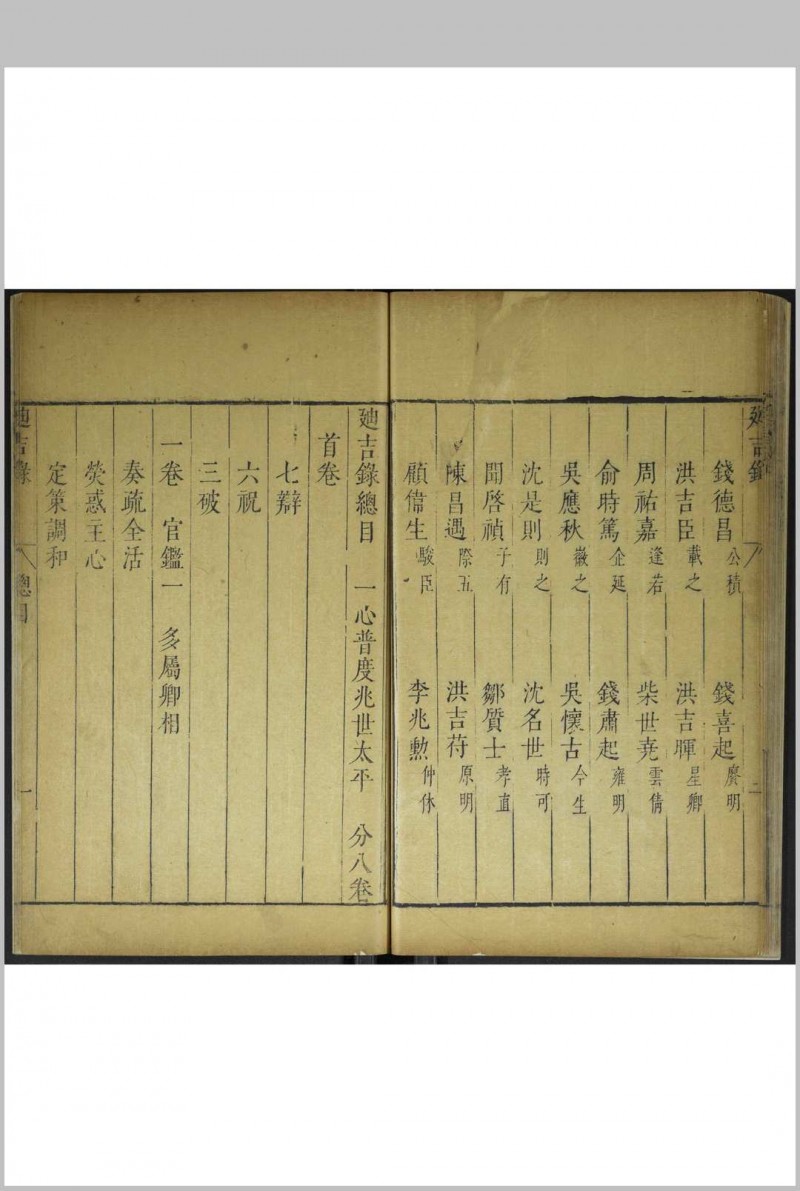 廸吉錄 二
錢德昌 公積 錢喜起 賡明
洪吉臣 載之 洪吉暉 星卿
周祐嘉 逢若 柴世堯 雲倩
俞時篤 企延 錢肅起 雍明
吳應秋 徽之 吳懷古 今生
沈是則 則之 沈名世 時可
聞啓禎 子有 鄒質士 孝直
陳昌遇 際五 洪吉符 原明
顧偹生 駿臣 李兆勲 仲休
廸吉錄總目 一心普度兆世太平 分八卷
首卷
七辯
六祝
三破
一卷 官鑑一 多屬卿相
奏疏全活
熒惑主心
定策調和
廸吉錄 總目 一